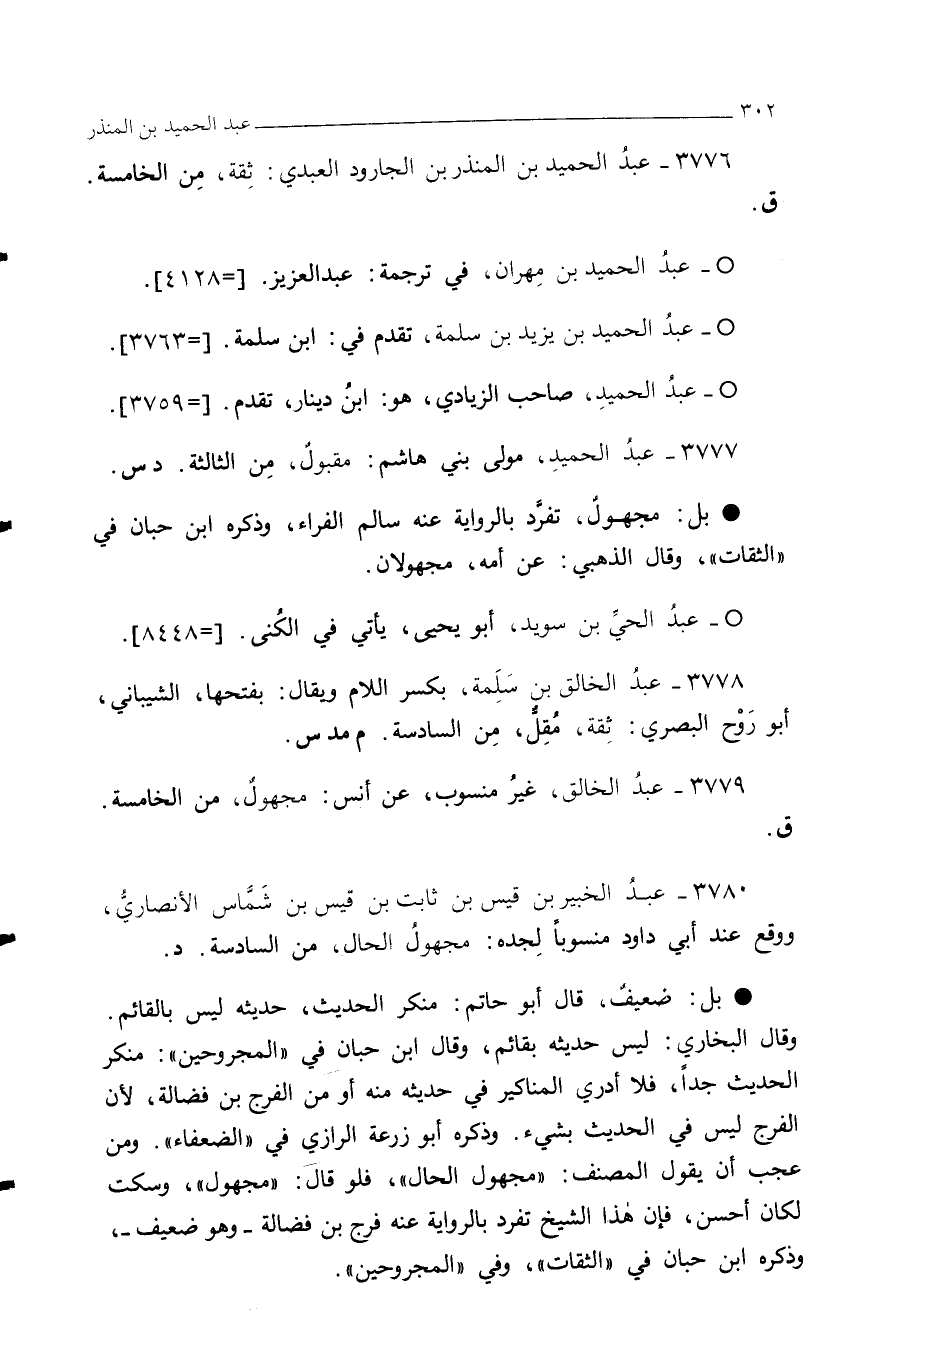 ٣٠٢ عبد الحميد بن المنذر
٣٧٧٦ ـ عبدُ الحميد بن المنذر بن الجارود العبدي: ثِقة، مِن الخامسة.
ق.
○ ـ عبدُ الحميد بن مِهران، في ترجمة: عبدالعزيز. [=٤١٢٨].
○ ـ عبدُ الحميد بن يزيد بن سلمة، تقدم في: ابن سلمة. [=٣٧٦٣].
○ ـ عبدُ الحميدِ، صاحب الزيادي، هو: ابنُ دينار، تقدم. [=٣٧٥٩].
٣٧٧٧ ـ عبدُ الحميدِ، مولى بني هاشم: مقبولٌ، مِن الثالثة. د س.
● بل: مجهـولٌ، تفرَّد بالرواية عنه سالم الفراء، وذكره ابن حبان في
«الثقات»، وقال الذهبي: عن أمه، مجهولان.
○ ـ عبدُ الحيِّ بن سويد، أبو يحيى، يأتي في الكُنى. [=٨٤٤٨].
٣٧٧٨ ـ عبدُ الخالق بن سَلَِمة، بكسر اللام ويقال: بفتحها، الشيباني،
أبو رَوْح البصري: ثِقة، مُقِلٌّ، مِن السادسة. م مد س.
٣٧٧٩ ـ عبدُ الخالق، غيرُ منسوب، عن أنس: مجهولٌ، من الخامسة.
ق.
٣٧٨٠ ـ عبـدُ الخبير بن قيس بن ثابت بن قيس بن شَمَّاس الأنصاريُّ،
ووقع عند أبي داود منسوباً لِجده: مجهولُ الحال، من السادسة. د.
● بل: ضعيفٌ، قال أبو حاتم: منكر الحديث، حديثه ليس بالقائم.
وقال البخاري: ليس حديثه بقائم، وقال ابن حبان في «المجروحين»: منكر
الحديث جداً، فلا أدري المناكير في حديثه منه أو من الفرج بن فضالة، لأن
الفرج ليس في الحديث بشيء. وذكره أبو زرعة الرازي في «الضعفاء». ومن
عجب أن يقول المصنف: «مجهول الحال»، فلو قال: «مجهول»، وسكت
لكان أحسن، فإن هٰذا الشيخ تفرد بالرواية عنه فرج بن فضالة ـ وهو ضعيف ـ،
وذكره ابن حبان في «الثقات»، وفي «المجروحين».